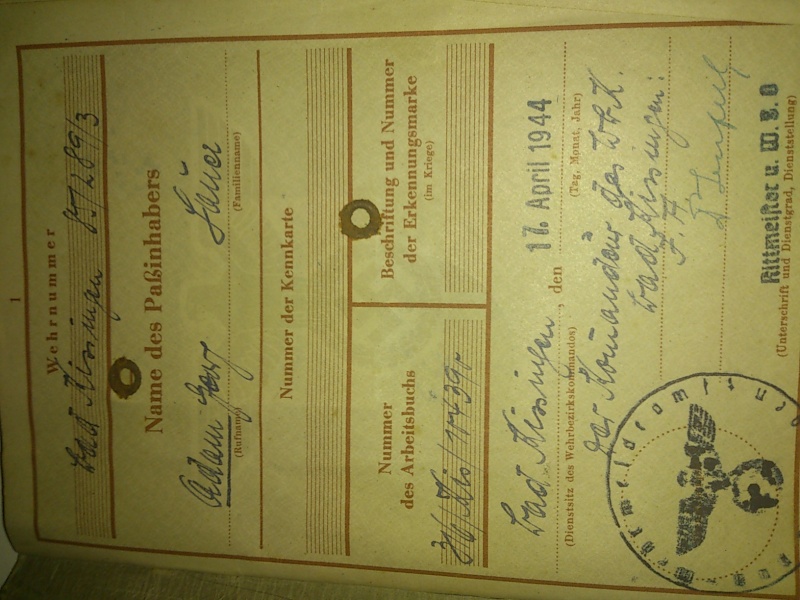 1
Wehrnummer
Bad Kissingen 15/289/3
Name des Paßinhabers
Adam Georg
(Rufname)
(Familienname)
Nummer der Kennkarte
Nummer
des Arbeitsbuchs
Beschriftung und Nummer
der Erkennungsmarke
(im Kriege)
Bad Kissingen, den 17. April 1944
(Dienstsitz des Wehrbezirkskommandos)
(Tag, Monat, Jahr)
Der Komandeur des W.B.K.
Bad Kissingen:
Rittmeister u. W.B.O
(Unterschrift und Dienstgrad, Dienststellung)